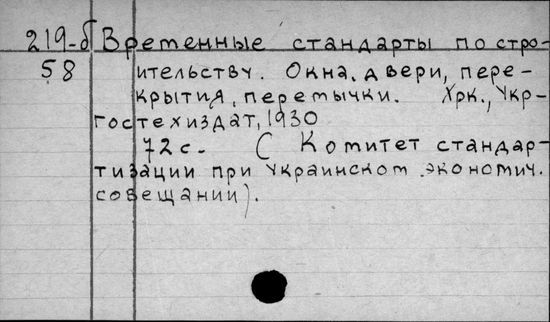 219-б Временные стандарты по стро-
58 ительству. Окна, двери, пере-
крытия, перемычки. Хрк., Укр-
гостехиздат, 1930
72 с. (Комитет стандар-
тизации при Украинском экономич.
совещании).